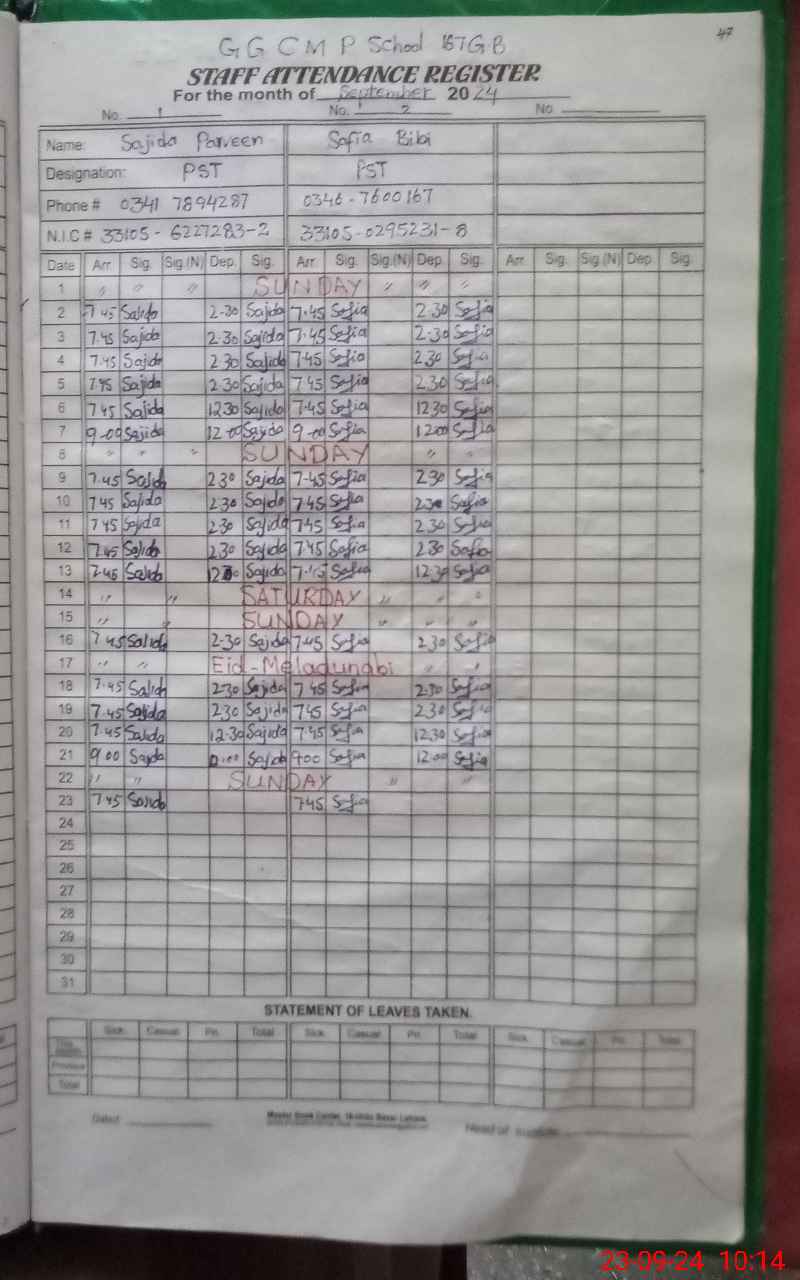 47
G G C M P School 167 G B
STAFF ATTENDANCE REGISTER
For the month of September 2024
No. 1 No. 2 No.
Name: Sajida Parveen Safia Bibi
Designation: PST PST
Phone # 0341 7894287 0346-7600167
N.I.C # 33105-6227283-2 33105-0295231-8
Date Arr. Sig. Sig.(N) Dep. Sig. Arr. Sig. Sig.(N) Dep. Sig. Arr. Sig. Sig.(N) Dep. Sig.
1 " " " SUNDAY " " "
2 7.45 Sajida 2-30 Sajida 7.45 Sofia 2.30 Sofia
3 7.45 Sajida 2.30 Sajida 7.45 Sofia 2-30 Sofia
4 7.45 Sajida 2.30 Sajida 7.45 Sofia 2.30 Sofia
5 7.45 Sajida 2.30 Sajida 7.45 Sofia 2.30 Sofia
6 7.45 Sajida 12.30 Sajida 7.45 Sofia 12.30 Sofia
7 9-00 Sajida 12-00 Sajida 9-00 Sofia 12.00 Sofia
8 " " " SUNDAY " "
9 7.45 Sajida 2.30 Sajida 7.45 Sofia 2.30 Sofia
10 7.45 Sajida 2.30 Sajida 7.45 Sofia 2.30 Safia
11 7.45 Sajida 2.30 Sajida 7.45 Sofia 2.30 Sofia
12 7.45 Sajida 2.30 Sajida 7.45 Safia 2.30 Safia
13 7.45 Sajida 12.30 Sajida 7.45 Sofia 12.30 Sofia
14 " " SATURDAY " " "
15 " " SUNDAY " " "
16 7.45 Sajida 2-30 Sajida 7.45 Sofia 2.30 Sofia
17 " " Eid-Meladunabi " "
18 7.45 Sajida 2.30 Sajida 7.45 Sofia 2.30 Sofia
19 7.45 Sajida 2.30 Sajida 7.45 Sofia 2.30 Sofia
20 7.45 Sajida 12.30 Sajida 7.45 Sofia 12.30 Sofia
21 9.00 Sajida Sajida 9.00 Sofia 12.00 Sofia
22 " " SUNDAY " "
23 7.45 Sajida 7.45 Sofia
24
25
26
27
28
29
30
31
STATEMENT OF LEAVES TAKEN.
Sick. Casual Pri. Total Sick. Casual Pri. Total Sick. Casual Pri. Total
Previous
Total
Dated
Head of
23-09-24 10:14